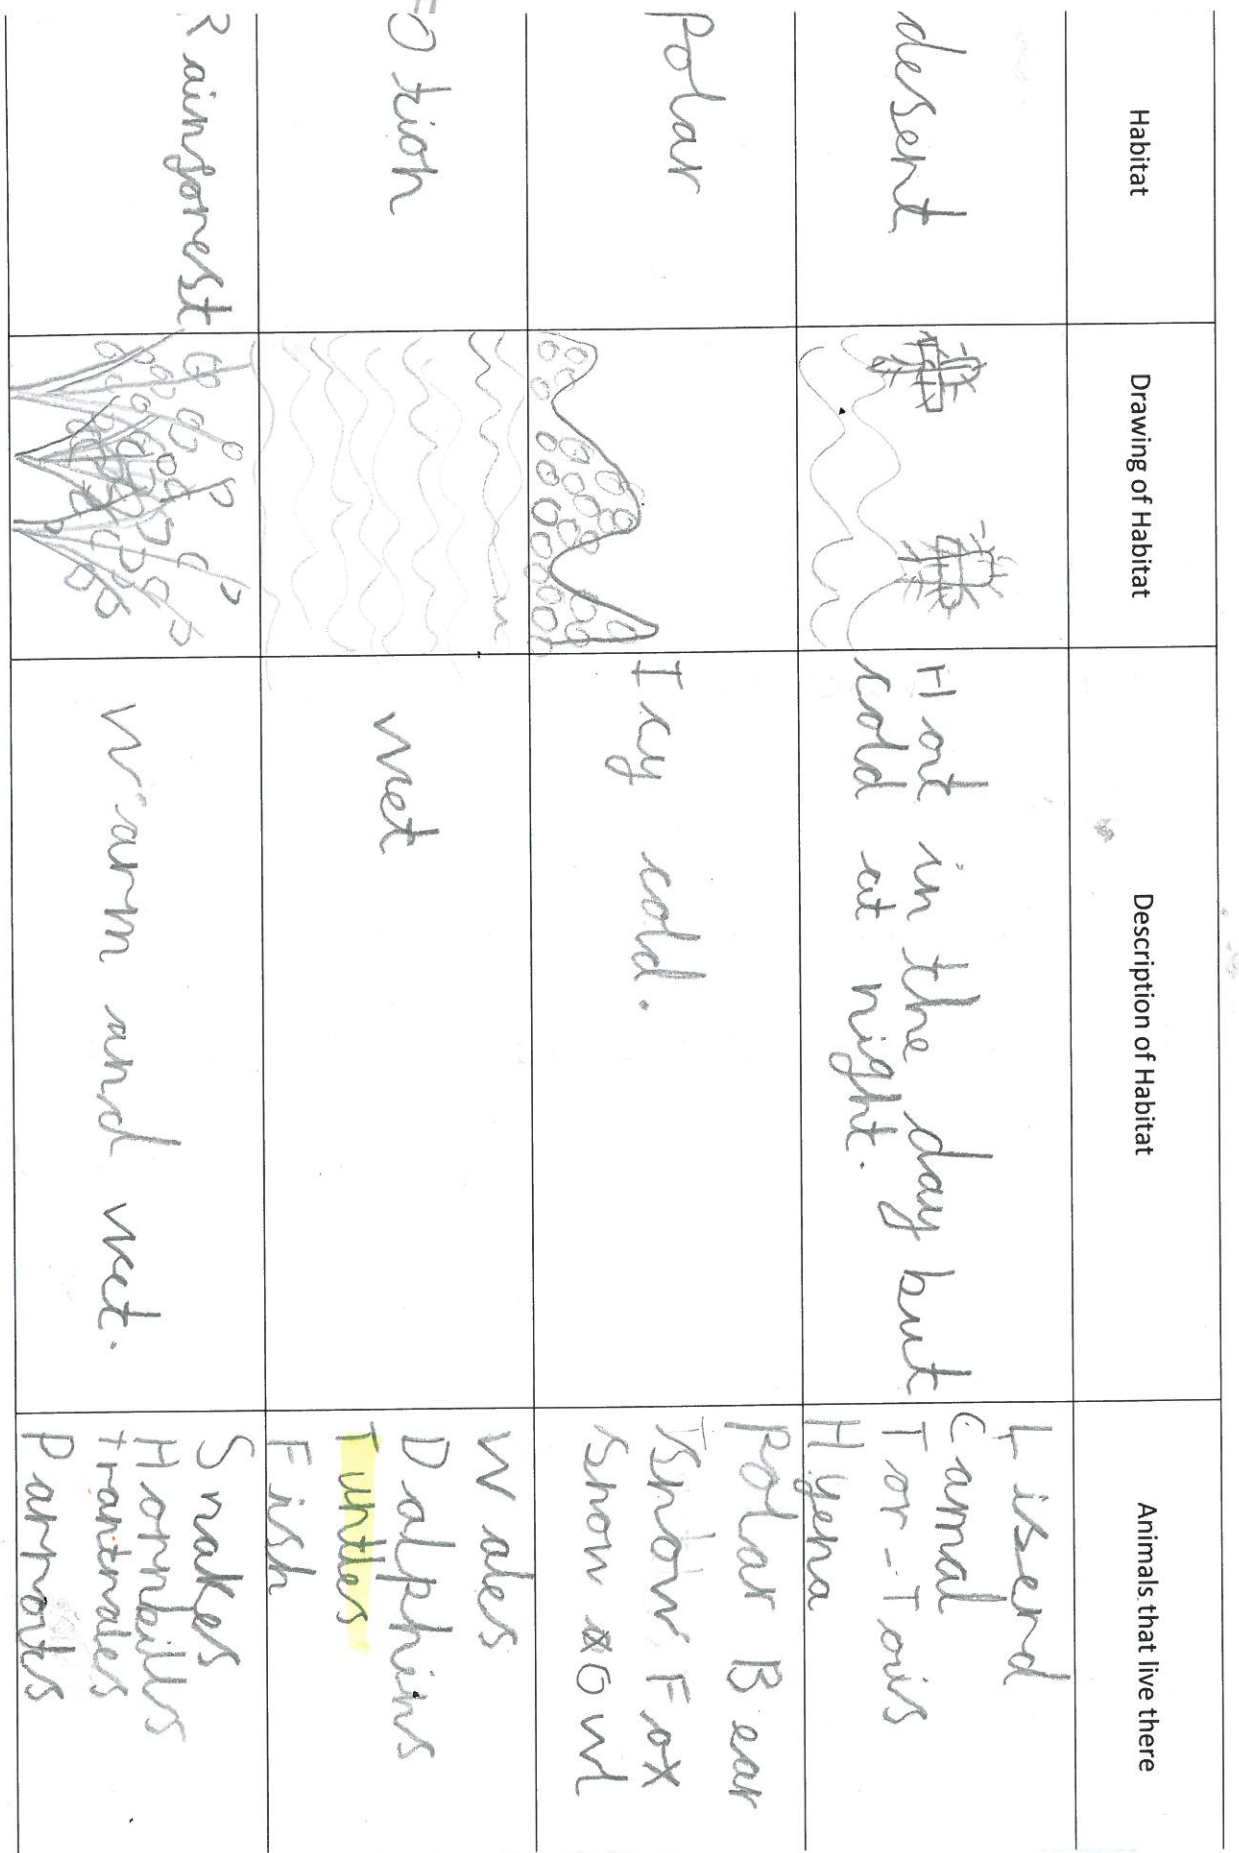 Habitat
Drawing of Habitat
Description of Habitat
Animals that live there
desert
Hot in the day but
cold at night.
Liserd
Camal
Tor-Tois
Hyena
Polar
Icy cold.
Polar Bear
Snow Fox
Snow Owl
Otion
wet
Wales
Dalphins
Turtles
Fish
Rainforest
Warm and wet.
Snakes
Hornbills
Parrots